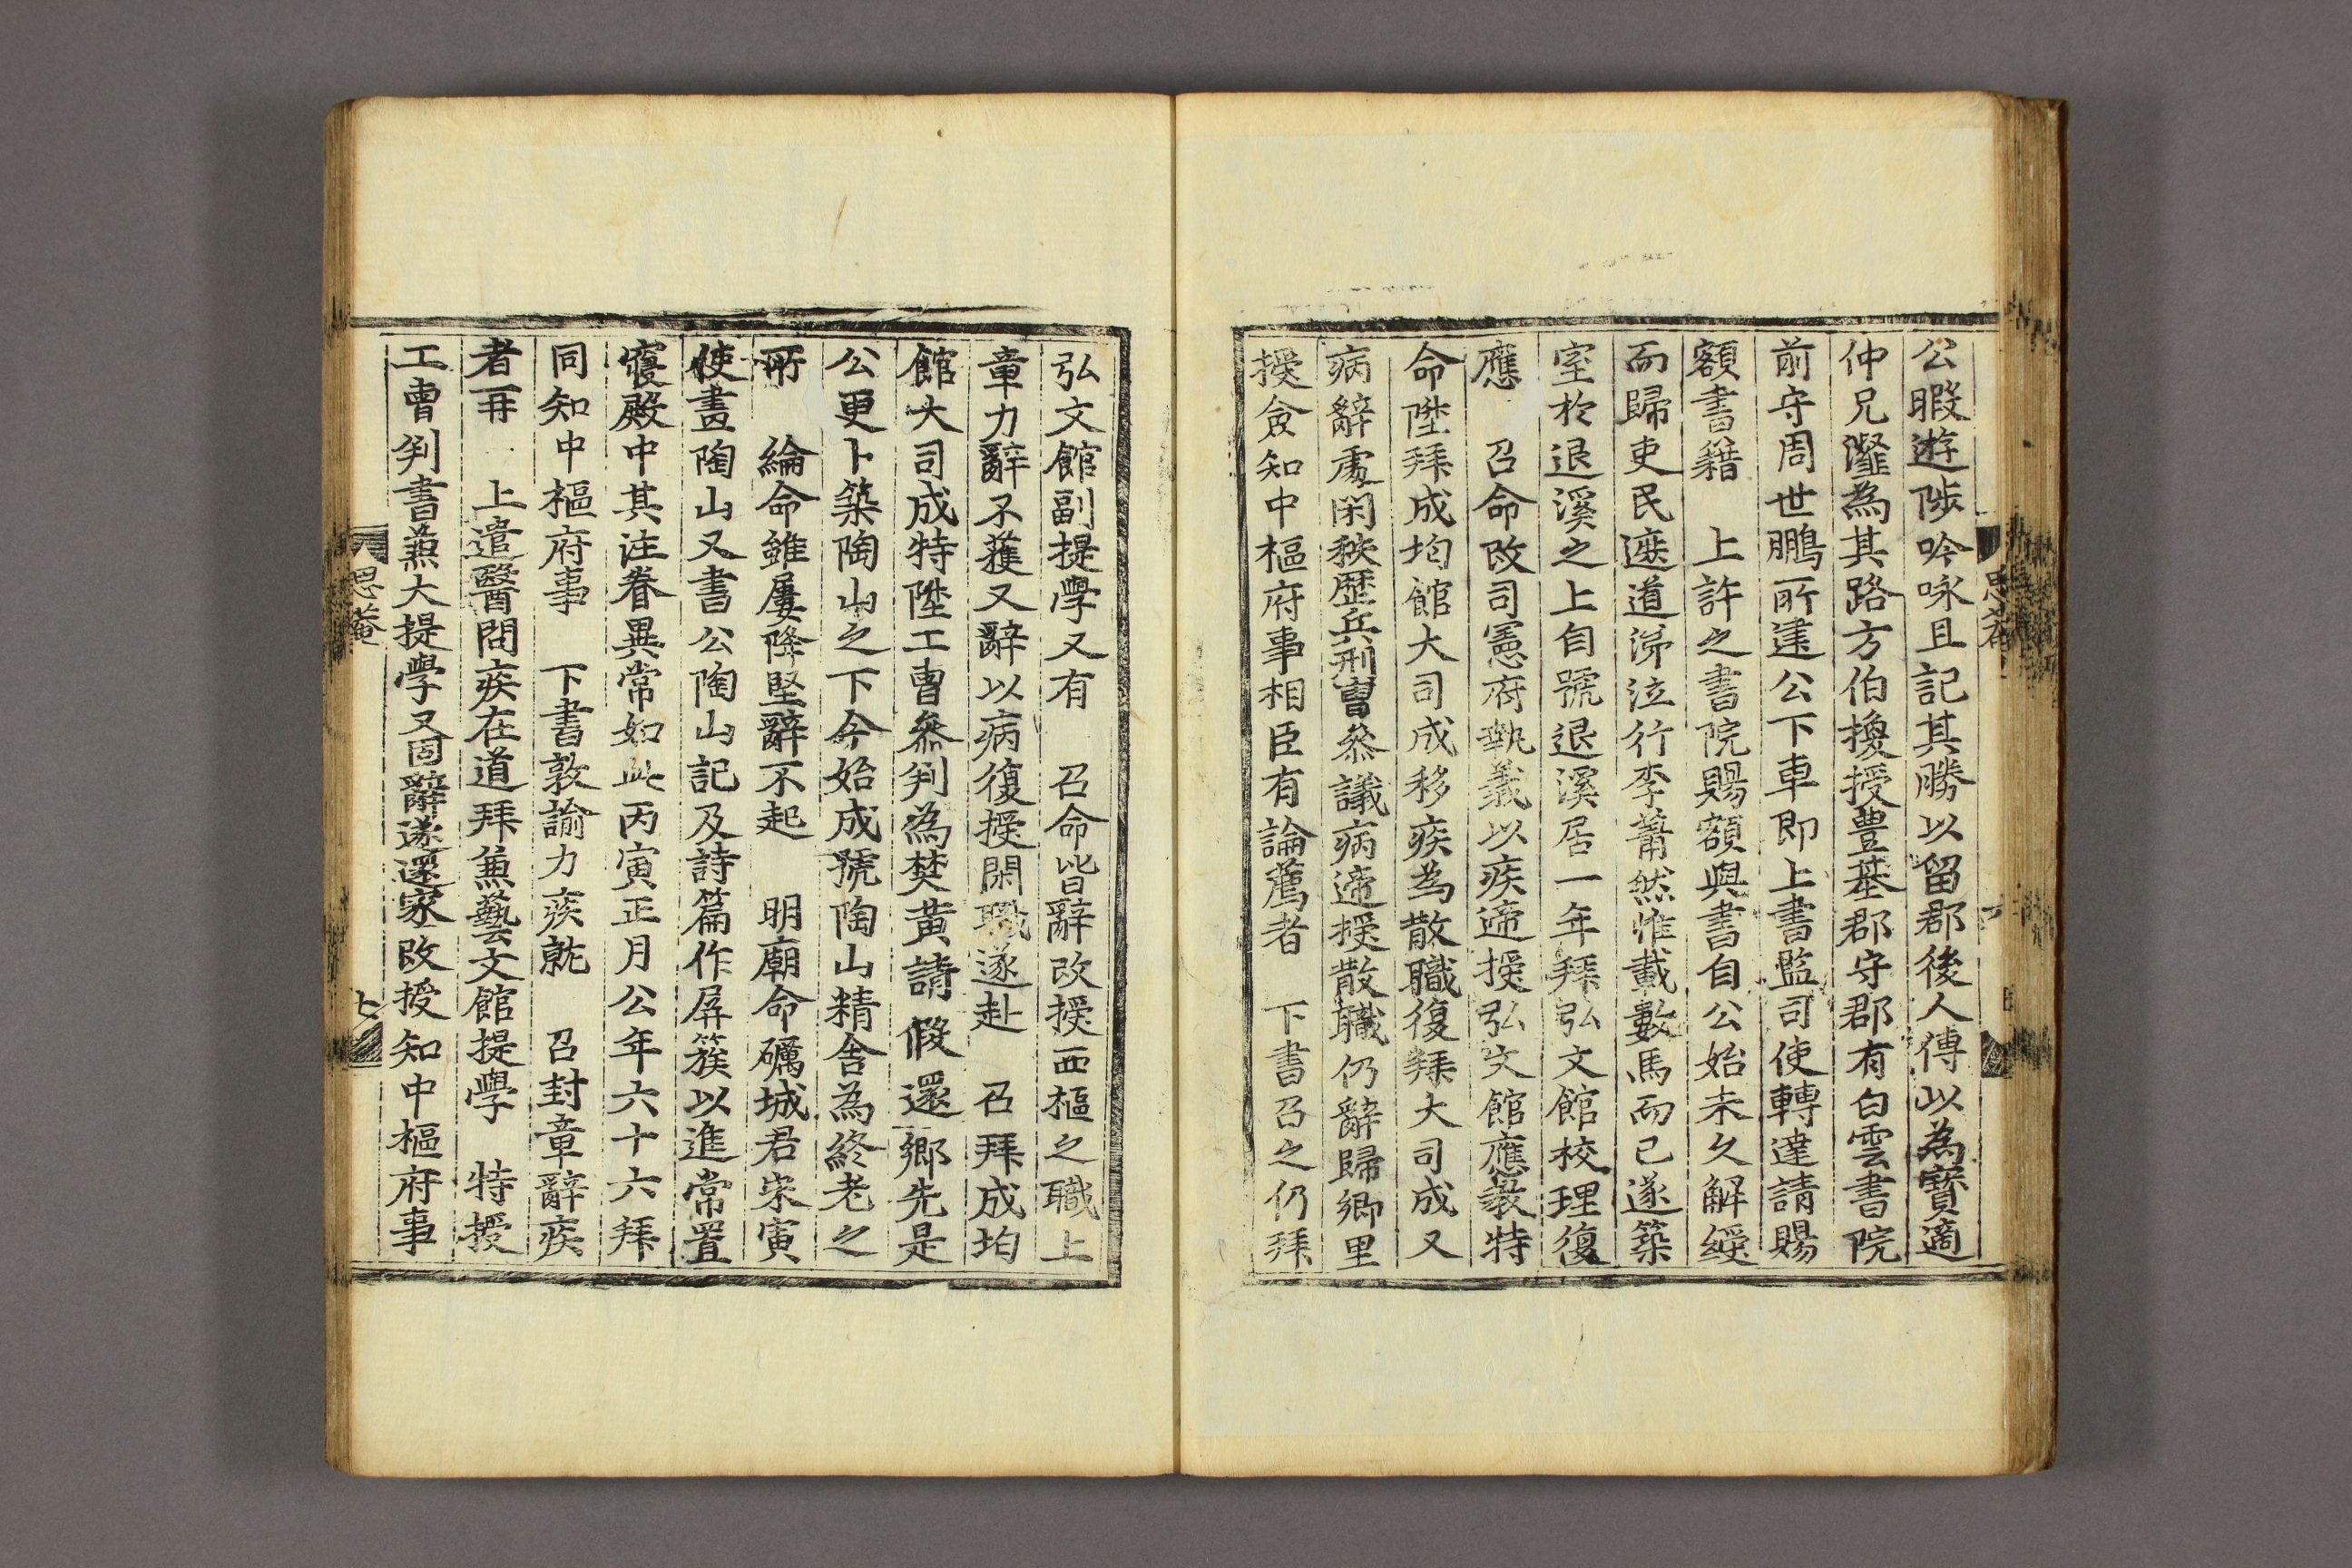 公暇遊陟吟咏且記其勝以留郡後人傳以為寶適
仲兄瀣為其路方伯換授豊基郡守郡有白雲書院
前守周世鵬所建公下車即上書監司使轉達請賜
額書籍 上許之書院賜額與書自公始未久解綬
而歸吏民遮道涕泣行李蕭然惟載數馬而已遂築
室於退溪之上自號退溪居一年拜弘文館校理復
應 召命改司憲府執義以疾遞授弘文館應敎特
命陞拜成均館大司成移疾為散職復拜大司成又
病辭處閑秩歷兵刑曹叅議病遞授散職仍辭歸鄉里
授僉知中樞府事相臣有論薦者 下書召之仍拜
弘文館副提學又有 召命皆辭改授西樞之職上
章力辭不獲又辭以病復授閑職遂赴 召拜成均
館大司成特陞工曹叅判為焚黃請假還鄉先是
公更卜築陶山之下今始成號陶山精舍為終老之
所 綸命雖屢降堅辭不起 明廟命礪城君宋寅
使畵陶山又書公陶山記及詩篇作屏簇以進常置
寢殿中其注眷異常如此丙寅正月公年六十六拜
同知中樞府事 下書敦諭力疾就 召封章辭疾
者再 上遣醫問疾在道拜兼藝文館提學 特授
工曹判書兼大提學又固辭遂還家改授知中樞府事
思菴
七